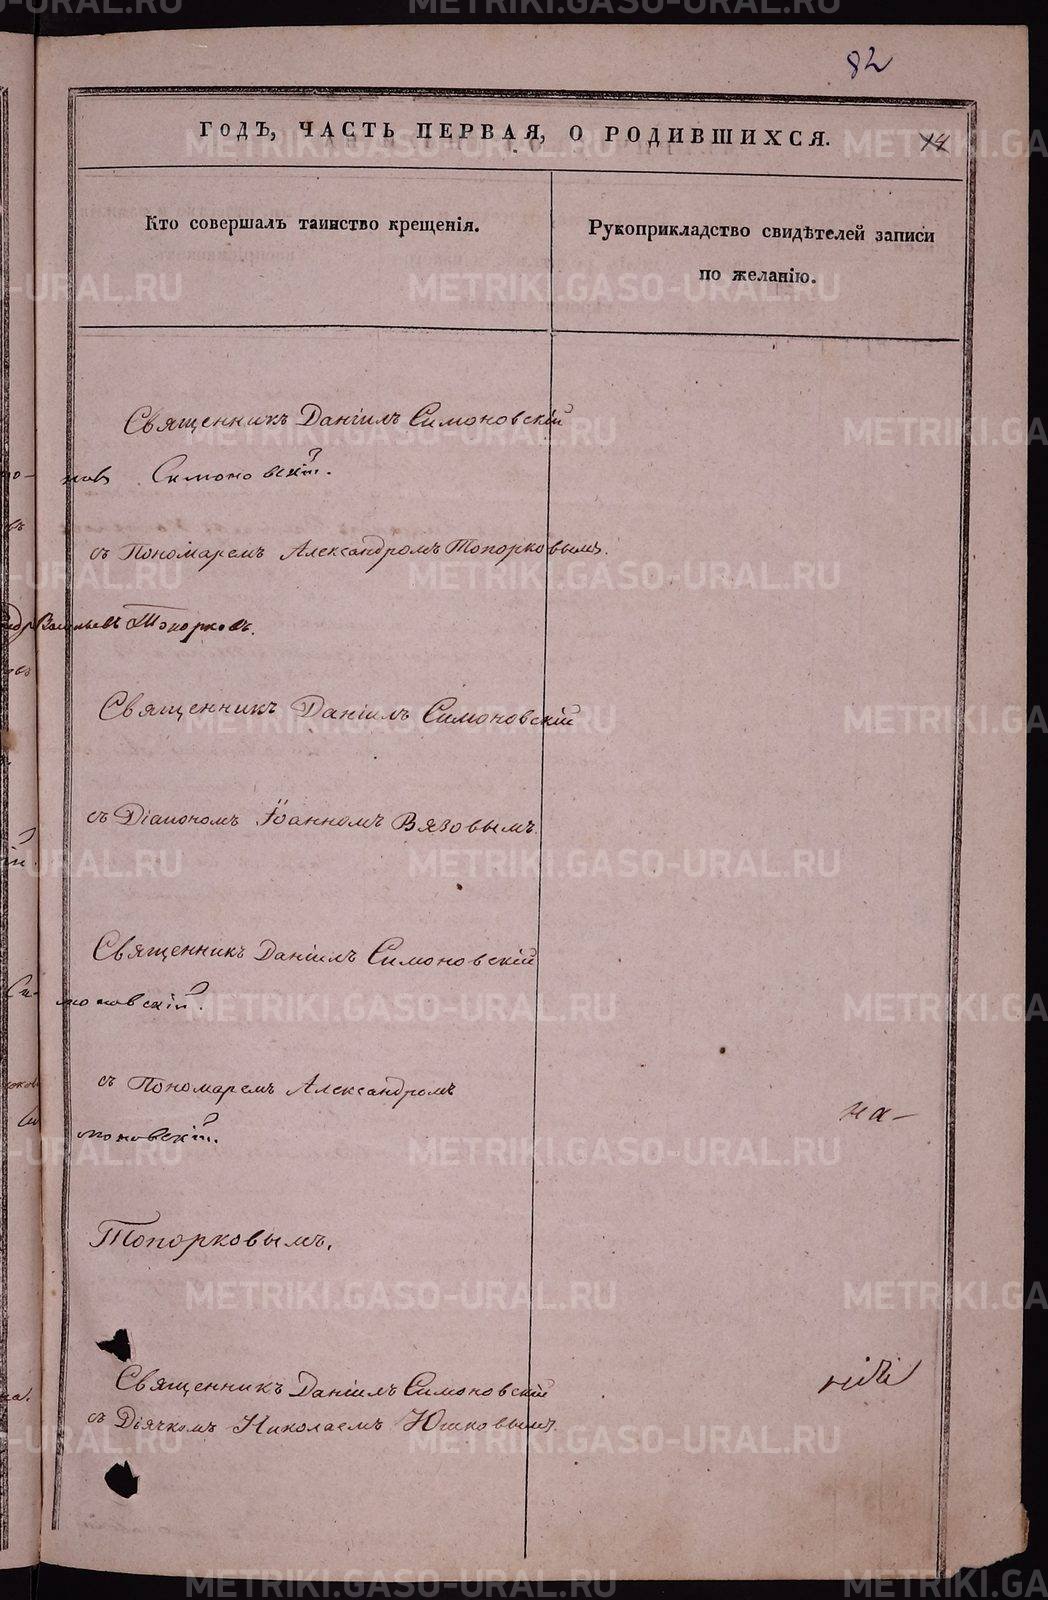 82
ГОДЪ, ЧАСТЬ ПЕРВАЯ, О РОДИВШИХСЯ.
Кто совершалъ таинство крещенія.
Рукоприкладство свидѣтелей записи
по желанію.
Священникъ Даніилъ Симоновскій
Симоновскій.
съ Пономаремъ Александромъ Топорковымъ.
Васильевъ Топорковъ.
Священникъ Даніилъ Симоновскій
съ Діакономъ Іоанномъ Вязовымъ.
Священникъ Даніилъ Симоновскій
Си-моновскій.
съ Пономаремъ Александромъ
на-
моновскій.
Топорковымъ.
Священникъ Даніилъ Симоновскій
съ Дьячкомъ Николаемъ Юшковымъ.
METRIKI.GASO-URAL.RU